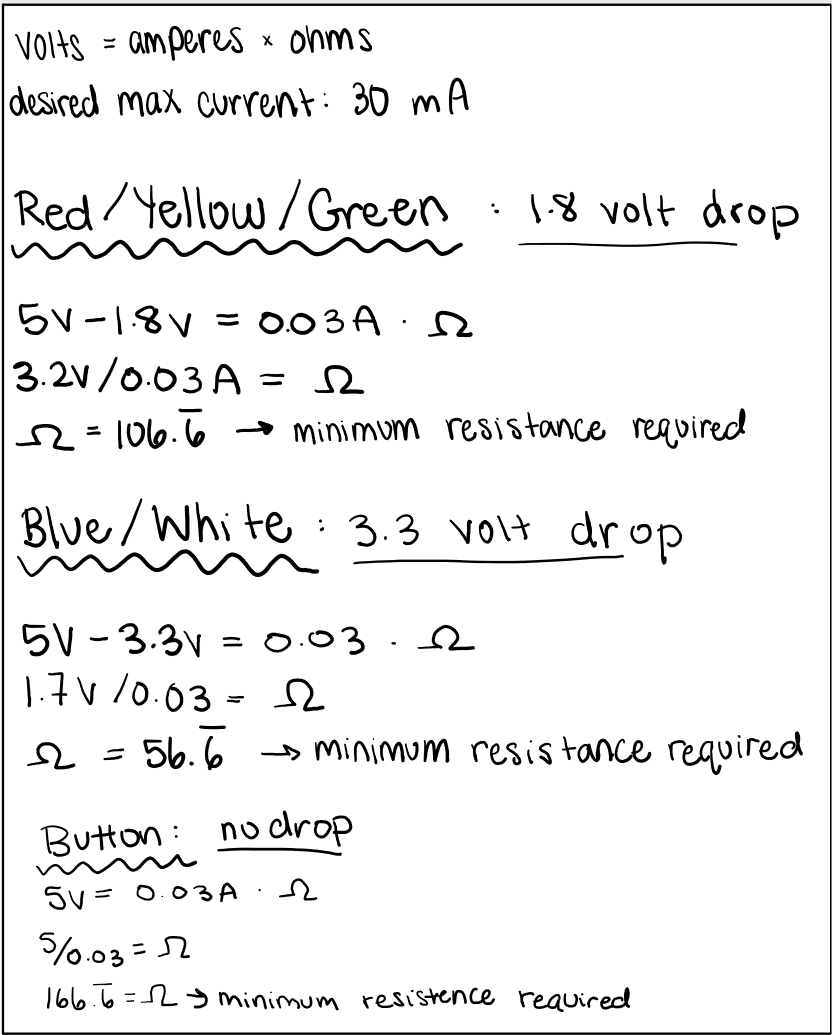 volts = amperes × ohms
desired max current: 30 mA
Red/Yellow/Green : 1.8 volt drop
5V - 1.8V = 0.03A · Ω
3.2V/0.03A = Ω
Ω = 106.6̅ → minimum resistance required
Blue/White : 3.3 volt drop
5V - 3.3V = 0.03 · Ω
1.7V/0.03 = Ω
Ω = 56.6̅ → minimum resistance required
Button: no drop
5V = 0.03A · Ω
5/0.03 = Ω
166.6̅ = Ω → minimum resistence required